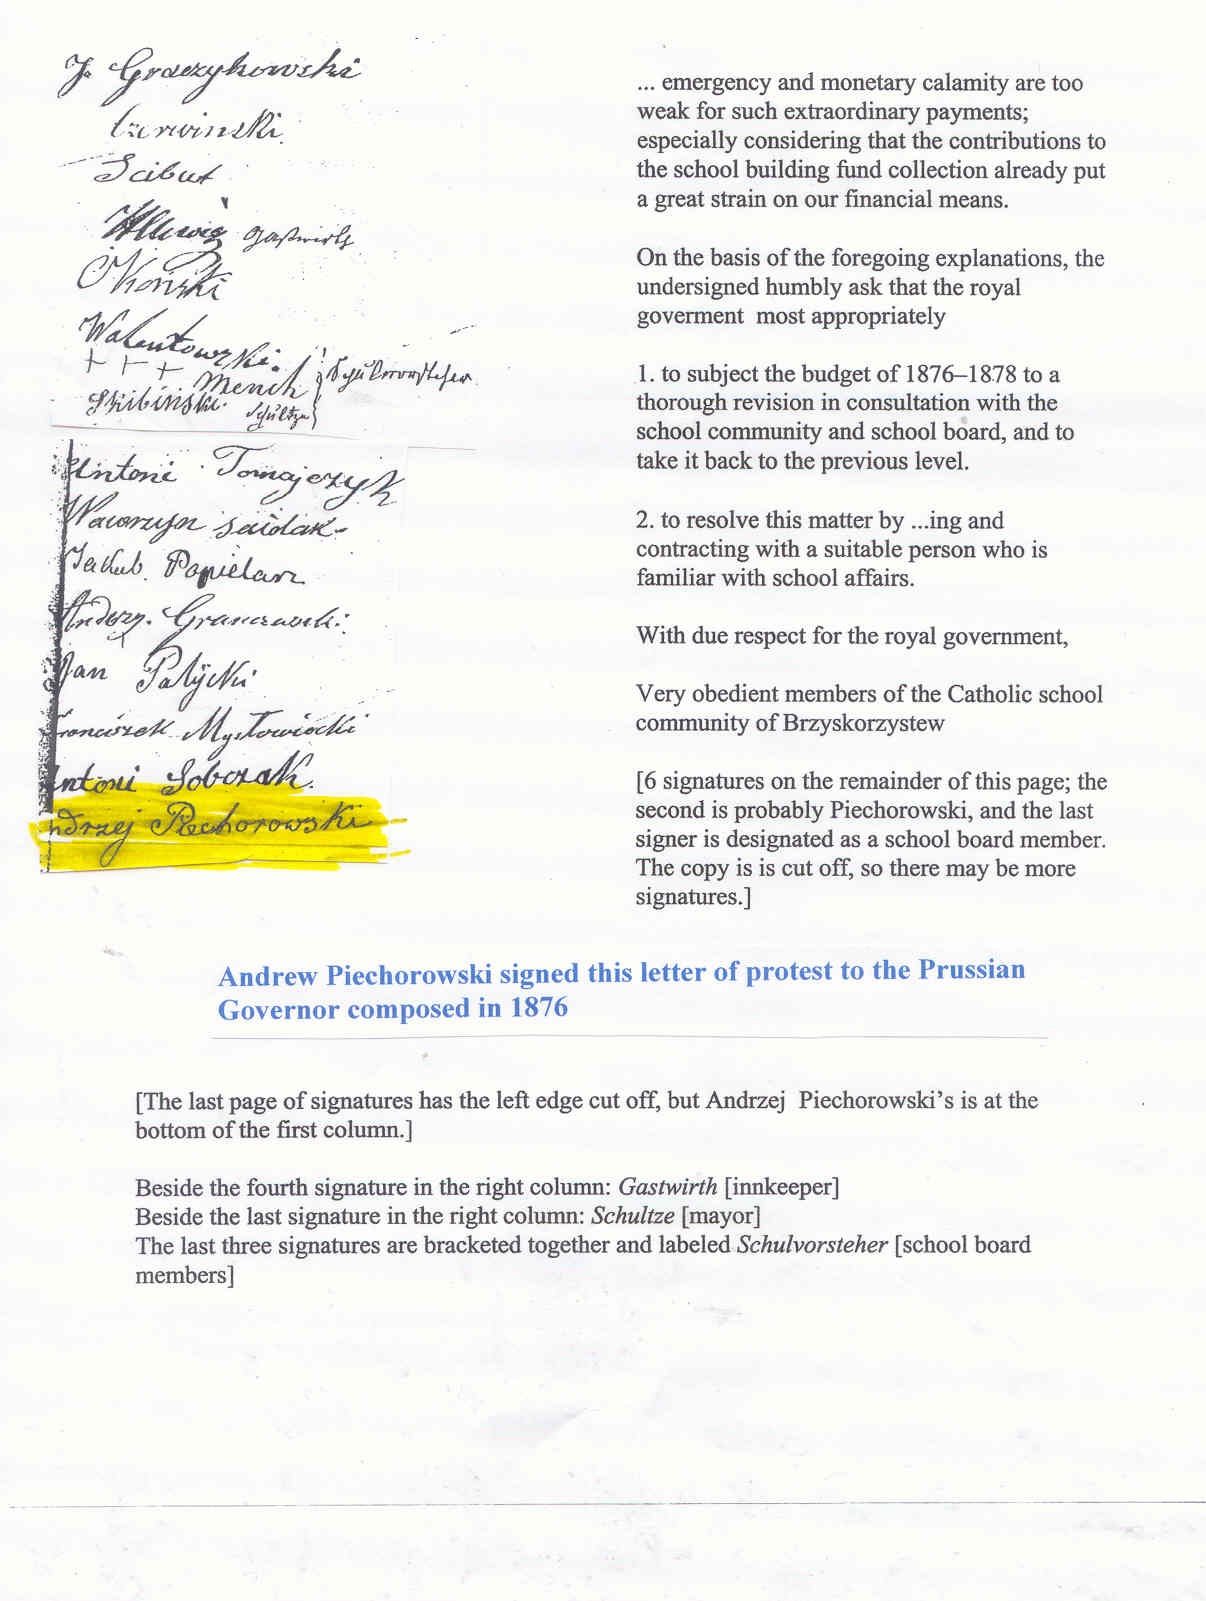 J. Graczykowski
Czerwinski
Scibut
gastwirth
Okonski
Walentowski.
+ + +
Mench
Skibinski. Schultze
Schulvorsteher
Antoni Tomajczyk
Wawrzyn Saidak
Jakub Papielarz
Andrzy.
Jan Palycki
Franciszek
ntoni Sobczak.
ndrzej Piechorowski
... emergency and monetary calamity are too
weak for such extraordinary payments;
especially considering that the contributions to
the school building fund collection already put
a great strain on our financial means.
On the basis of the foregoing explanations, the
undersigned humbly ask that the royal
goverment most appropriately
1. to subject the budget of 1876–1878 to a
thorough revision in consultation with the
school community and school board, and to
take it back to the previous level.
2. to resolve this matter by ...ing and
contracting with a suitable person who is
familiar with school affairs.
With due respect for the royal government,
Very obedient members of the Catholic school
community of Brzyskorzystew
[6 signatures on the remainder of this page; the
second is probably Piechorowski, and the last
signer is designated as a school board member.
The copy is is cut off, so there may be more
signatures.]
Andrew Piechorowski signed this letter of protest to the Prussian
Governor composed in 1876
[The last page of signatures has the left edge cut off, but Andrzej Piechorowski's is at the
bottom of the first column.]
Beside the fourth signature in the right column: Gastwirth [innkeeper]
Beside the last signature in the right column: Schultze [mayor]
The last three signatures are bracketed together and labeled Schulvorsteher [school board
members]